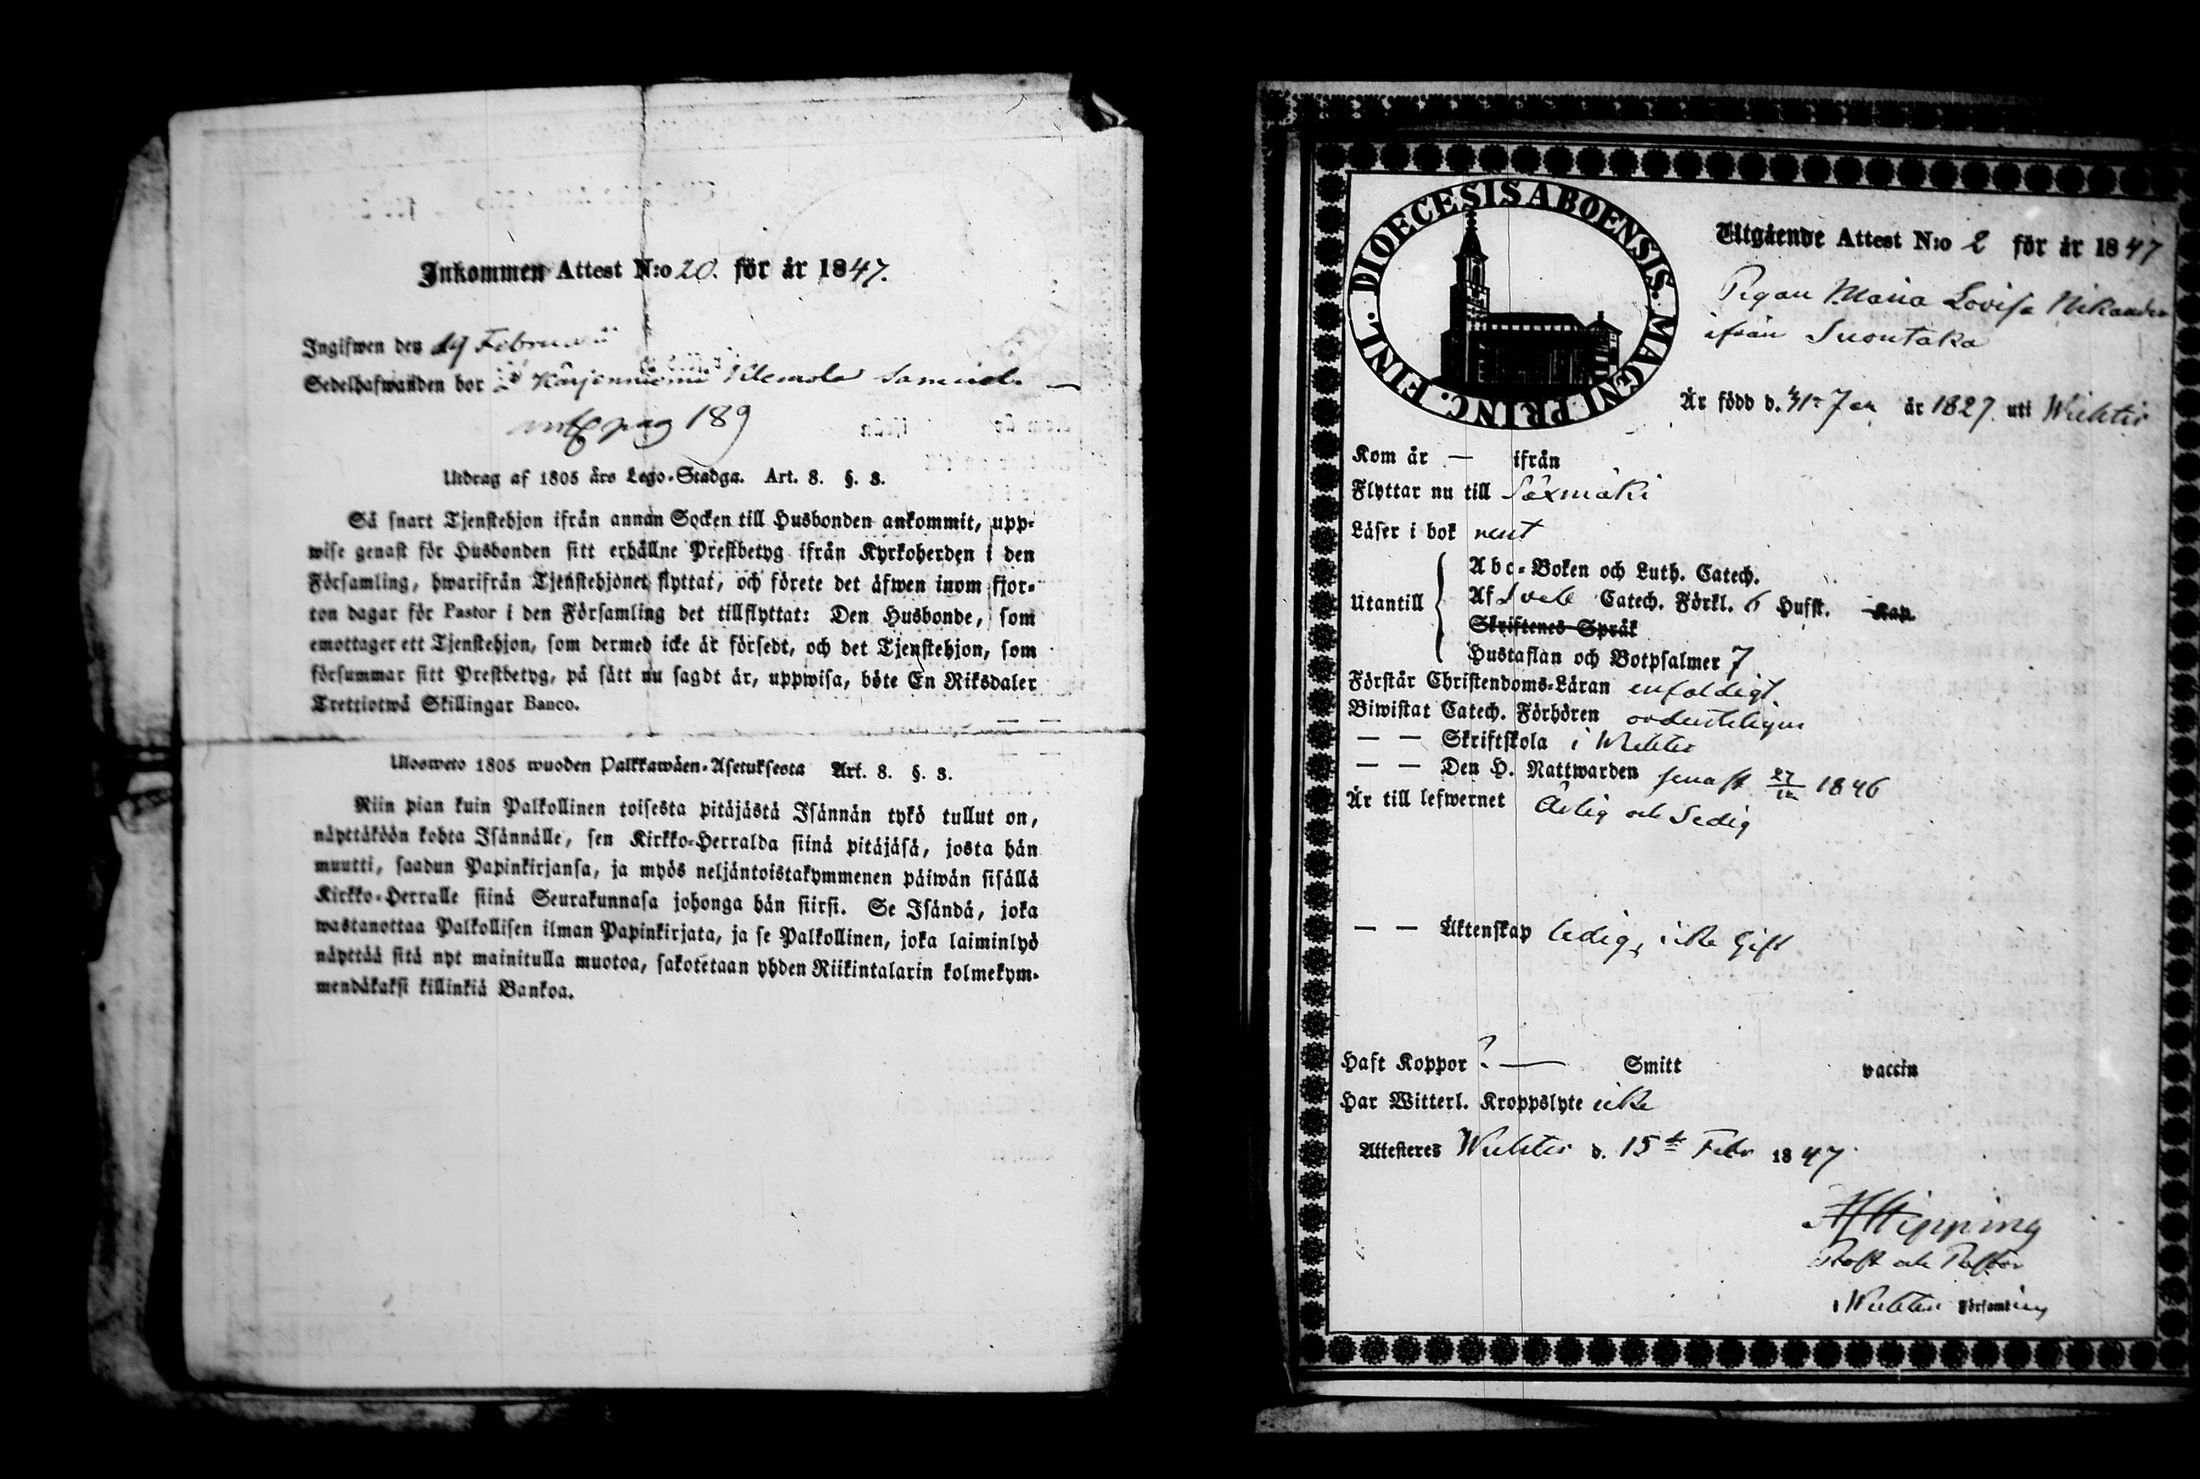 Inkommen Attest N:o 20. för år 1847.
Ingifwen den 19 Februarii
Sedelhafwanden bor i Kärjenniemi Samuel —
pag 189
Utdrag af 1805 års Lego-Stadga. Art. 8. §. 3.
Så snart Tjenstehjon ifrån annan Socken till Husbonden ankommit, upp-
wise genast för Husbonden sitt erhållne Prestbetyg ifrån Kyrkoherden i den
Församling, hwarifrån Tjenstehjonet flyttat, och förete det äfwen inom fjor-
ton dagar för Pastor i den Församling det tillflyttat: Den Husbonde, som
emottager ett Tjenstehjon, som dermed icke är försedt, och det Tjenstehjon, som
försummar sitt Prestbetyg, på sätt nu sagdt är, uppwisa, böte En Riksdaler
Trettiotwå Skillingar Banco.
Ulosweto 1805 wuoden Palkkawäen-Asetuksesta Art. 8. §. 3.
Niin pian kuin Palkollinen toisesta pitäjästä Isännän tykö tullut on,
näyttäköön kohta Isännälle, sen Kirkko-Herralda siinä pitäjäsä, josta hän
muutti, saadun Papinkirjansa, ja myös neljäntoistakymmenen päiwän sisällä
Kirkko-Herralle siinä Seurakunnasa johonga hän siirsi. Se Isändä, joka
wastanottaa Palkollisen ilman Papinkirjata, ja se Palkollinen, joka laiminlyö
näyttää sitä nyt mainitulla muotoa, sakotetaan yhden Riikintalarin kolmekym-
mendäkaksi killinkiä Bankoa.
DIOECESIS ABOENSIS. MAGNI PRINC. FINL.
Utgående Attest N:o 2 för år 1847
Pigan Maria Lovisa Nikander
ifrån Suontaka
Är född d. 31 Jan år 1827. uti Wichtis
Kom år — ifrån
Flyttar nu till Sääxmäki
Läser i bok rent
Utantill
Abc-Boken och Luth. Catech.
Af Sveb Catech. Förkl. 6 Hufst. Kap.
Skriftenes Språk
Hustaflan och Botpsalmer 7
Förstår Christendoms-Läran enfaldigt
Biwistat Catech. Förhören ordenteligen
— — Skriftskola i Wichtis
— — Den H. Nattwarden senast 27/12 1846
Är till lefwernet Ärlig och Sedig
— — Äktenskap ledig, icke gift
Haft Koppor ? — Smitt vaccin
Har Witterl. Kroppslyte icke
Attesteres Wichtis d. 15de Febr 1847
AJHipping
Prost och Pastor
i Wichtis Församling